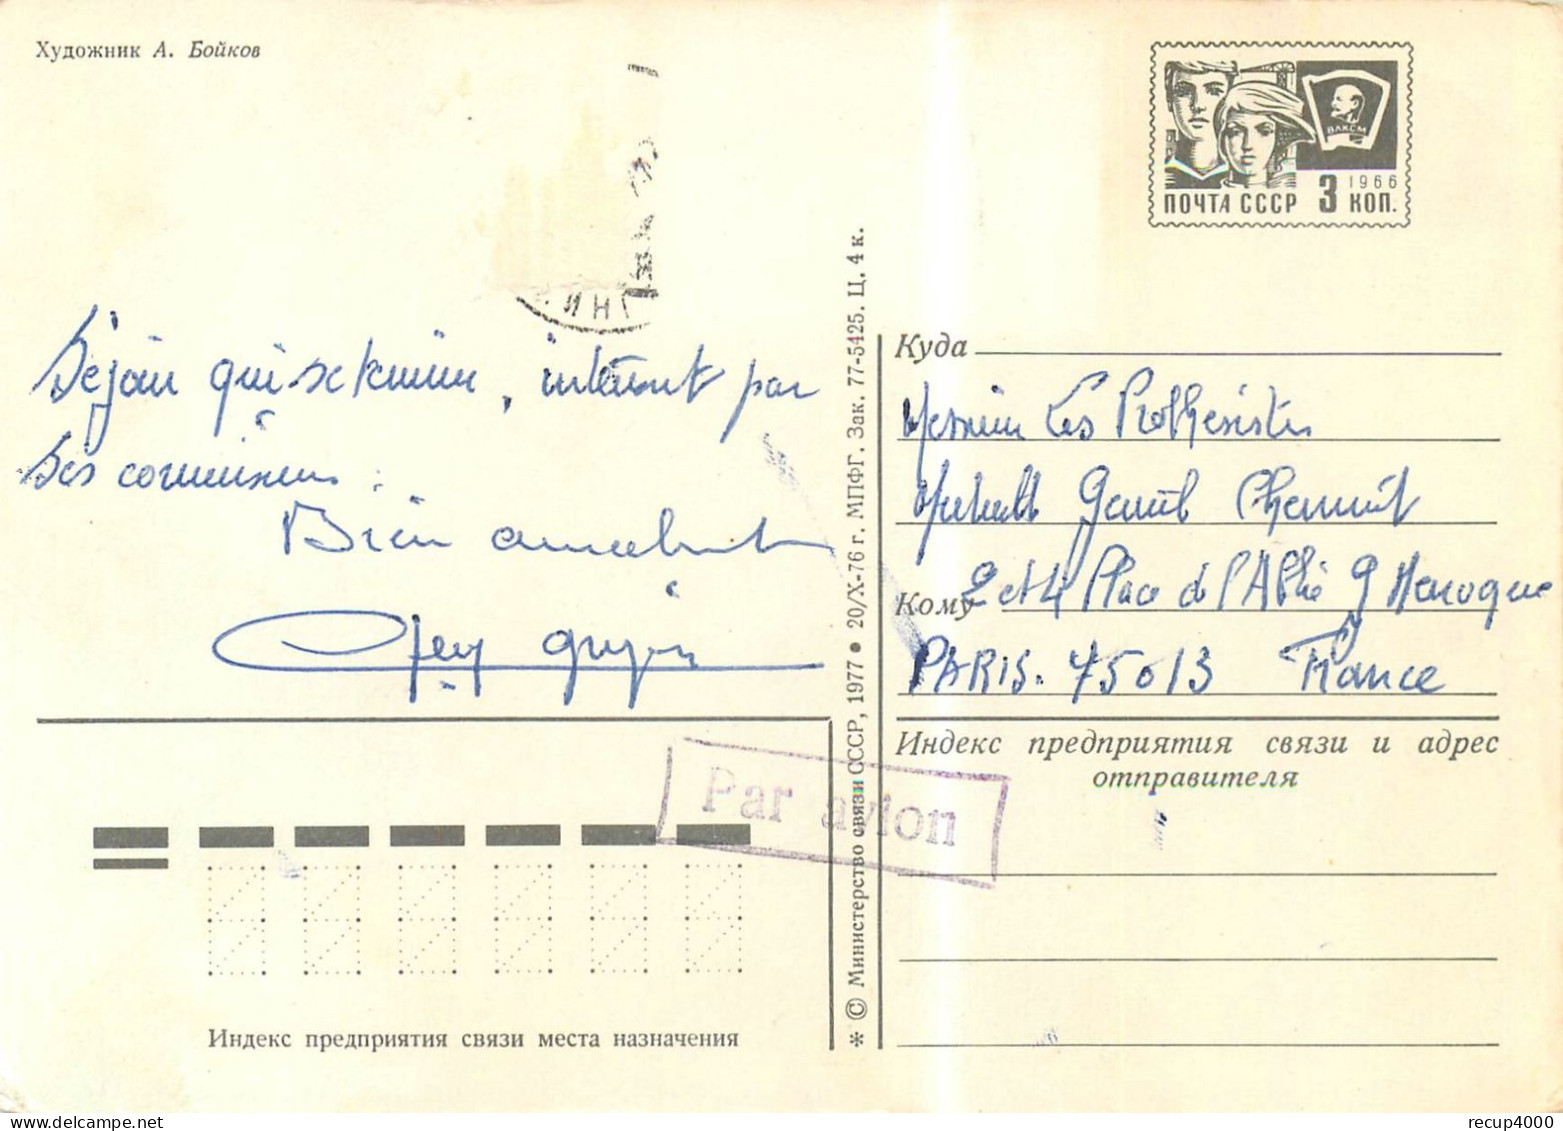 Художник А. Бойков
ВЛКСМ
1966
ПОЧТА СССР 3 КОП.
ИНГ
Séjour qui se termine, intéressant par
ses
Bien amicalement
Куда
Messieurs Les Prothésistes
2 et 4 Place de l'Abbé G Henocque
Кому
PARIS. 75013 France
Индекс предприятия связи и адрес
отправителя
Par avion
* © Министерство связи СССР, 1977 ● 20/X-76 г. МПФГ. Зак. 77-5425. Ц. 4 к.
Индекс предприятия связи места назначения
recup4000